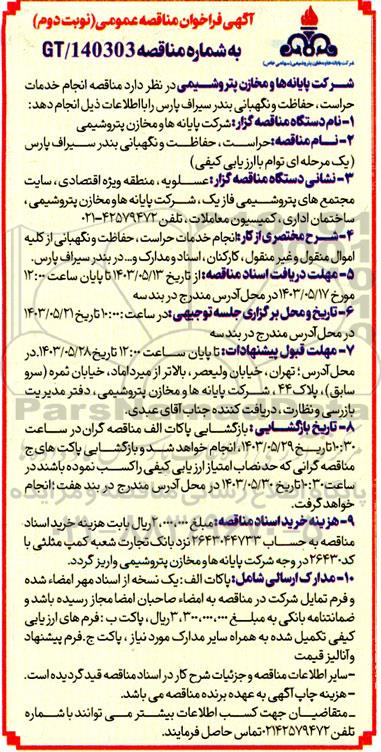 آگهی فراخوان مناقصه عمومی (نوبت دوم)
به شماره مناقصه GT/140303
شرکت پایانه‌ها و مخازن پتروشیمی (سهامی خاص)
شرکت پایانه‌ها و مخازن پتروشیمی در نظر دارد مناقصه انجام خدمات
حراست، حفاظت و نگهبانی بندر سیراف پارس را با اطلاعات ذیل انجام دهد:
۱- نام دستگاه مناقصه گزار: شرکت پایانه ها و مخازن پتروشیمی
۲- نـام مناقصه: حراسـت، حفاظـت و نگهبانی بندر سیراف پارس
(یک مرحله ای توام با ارزیابی کیفی)
۳- نشانی دستگاه مناقصه گزار: عسلویه، منطقه ویژه اقتصادی، سایت
مجتمع های پتروشیمی فاز یک، شرکت پایانه ها و مخازن پتروشیمی،
ساختمان اداری، کمیسیون معاملات، تلفن ۴۲۵۷۹۴۷۲-۰۲۱
۴- شرح مختصری از کار: انجام خدمات حراست، حفاظت و نگهبانی از کلیه
اموال منقول و غیر منقول، کارکنان، اسناد و مدارک و... در بندر سیراف پارس.
۵- مهلت دریافت اسناد مناقصه: از تاریخ ۱۴۰۳/۰۵/۱۳ تا پایان ساعت ۱۲:۰۰
مورخ ۱۴۰۳/۰۵/۱۷ در محل آدرس مندرج در بند سه
۶- تاریخ و محل برگزاری جلسه توجیهی: در ساعت: ۱۰:۰۰ تاریخ ۱۴۰۳/۰۵/۲۱
در محل آدرس مندرج در بند سه
۷- مهلت قبول پیشنهادات: تا پایان ساعت ۱۲:۰۰ تاریخ ۱۴۰۳/۰۵/۲۸، در
محل آدرس؛ تهران، خیابان ولیعصر، بالاتر از میرداماد، خیابان ثمره (سرو
سابق)، پلاک ۴۴، شرکت پایانه ها و مخازن پتروشیمی، دفتر مدیریت
بازرسی و نظارت، دریافت کننده جناب آقای عبدی.
۸- تاریخ بازگشایی: بازگشایی پاکات الف مناقصه گران در ساعت
۱۰:۳۰ تاریخ ۱۴۰۳/۰۵/۲۹، انجام خواهد شد و بازگشایی پاکت های ج
مناقصه گرانی که حد نصاب امتیاز ارزیابی کیفی را کسب نموده باشند در
ساعت ۱۰:۳۰ تاریخ ۱۴۰۳/۰۵/۳۰ در محل آدرس مندرج در بند هفت؛ انجام
خواهد گرفت.
۹- هزینه خرید اسناد مناقصه: مبلغ ۲،۰۰۰،۰۰۰ ریال بابت هزینه خرید اسناد
مناقصه به حساب ۲۶۴۳۰۴۴۷۳۳ نزد بانک تجارت شعبه کمپ مثلثی با
کد ۲۶۴۳۰ در وجه شرکت پایانه ها و مخازن پتروشیمی واریز گردد.
۱۰- مدارک ارسالی شامل: پاکات الف: یک نسخه از اسناد مهر امضاء شده
و فرم تمایل شرکت در مناقصه به امضاء صاحبان امضا مجاز رسیده باشد و
ضمانتنامه بانکی به مبلغ ۳،۳۰۰،۰۰۰،۰۰۰ ریال، پاکات ب: فرم های ارزیابی
کیفی تکمیل شده به همراه سایر مدارک مورد نیاز، پاکات ج. فرم پیشنهاد
و آنالیز قیمت
- سایر اطلاعات مناقصه و جزئیات شرح کار در اسناد مناقصه قید گردیده است.
- هزینه چاپ آگهی به عهده برنده مناقصه می باشد.
- متقاضیان جهت کسب اطلاعات بیشتر می توانند با شماره
تلفن ۰۲۱۴۲۵۷۹۴۷۲ تماس حاصل فرمایند.